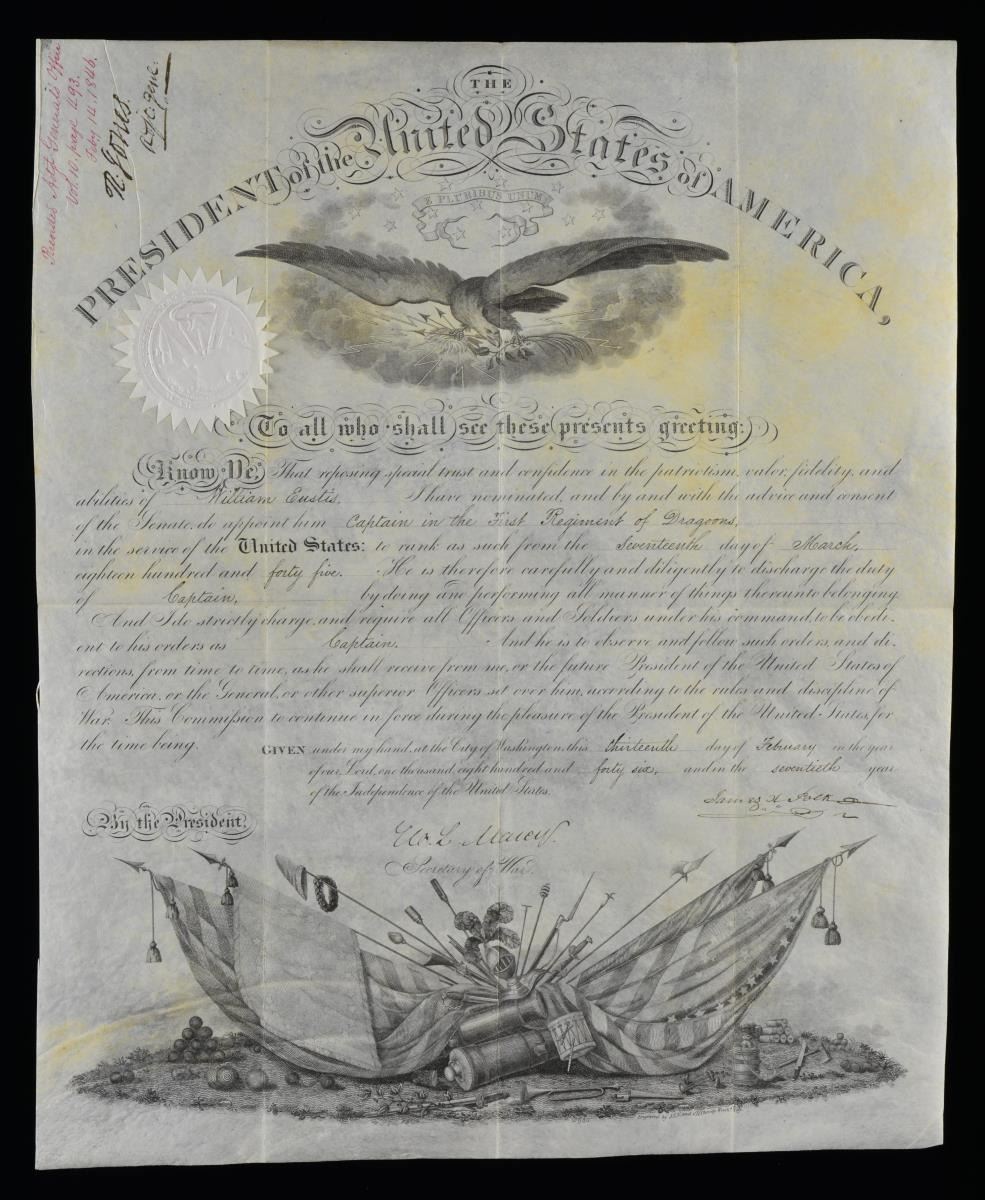 Vol. 10. page 493.
Feby 14. 1846.
R. Jones.
THE
PRESIDENT of the United States of AMERICA,
E PLURIBUS UNUM
To all who shall see these presents greeting:
Know Ye, That reposing special trust and confidence in the patriotism, valor, fidelity, and
abilities of William Eustis, I have nominated, and by and with the advice and consent
of the Senate, do appoint him Captain in the First Regiment of Dragoons,
in the service of the United States: to rank as such from the Seventeenth day of March,
eighteen hundred and forty five. He is therefore carefully and diligently to discharge the duty
of Captain, by doing and performing all manner of things thereunto belonging.
And I do strictly charge, and require all Officers and Soldiers under his command, to be obedi-
ent to his orders as Captain. And he is to observe and follow such orders, and di-
rections, from time to time, as he shall receive from me, or the future President of the United States of
America, or the General, or other superior Officers set over him, according to the rules and discipline of
War. This Commission to continue in force during the pleasure of the President of the United States, for
the time being.
GIVEN under my hand, at the City of Washington, this thirteenth day of February in the year
of our Lord, one thousand, eight hundred and forty six, and in the seventieth year
of the Independence of the United States.
James K Polk
By the President,
W. L. Marcy.
Secretary of War.